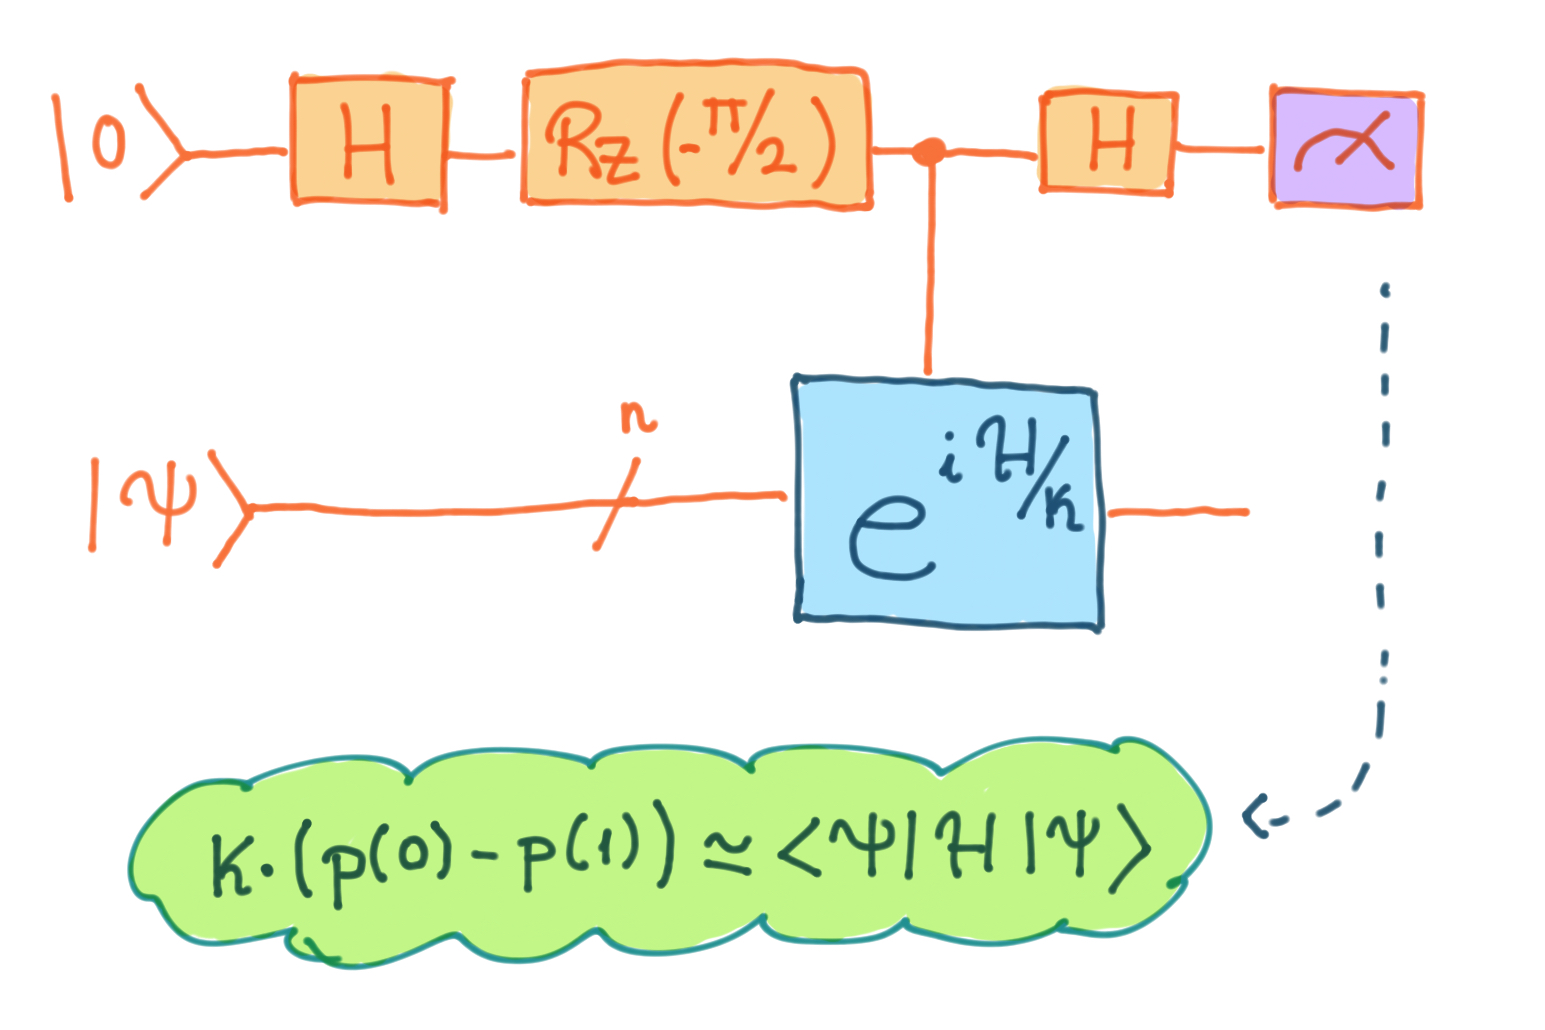 |0⟩ H Rz(-π/2) H
n
|ψ⟩ e^{iℋ/k}
k·(p(0)-p(1)) ≃ <ψ|ℋ|ψ>